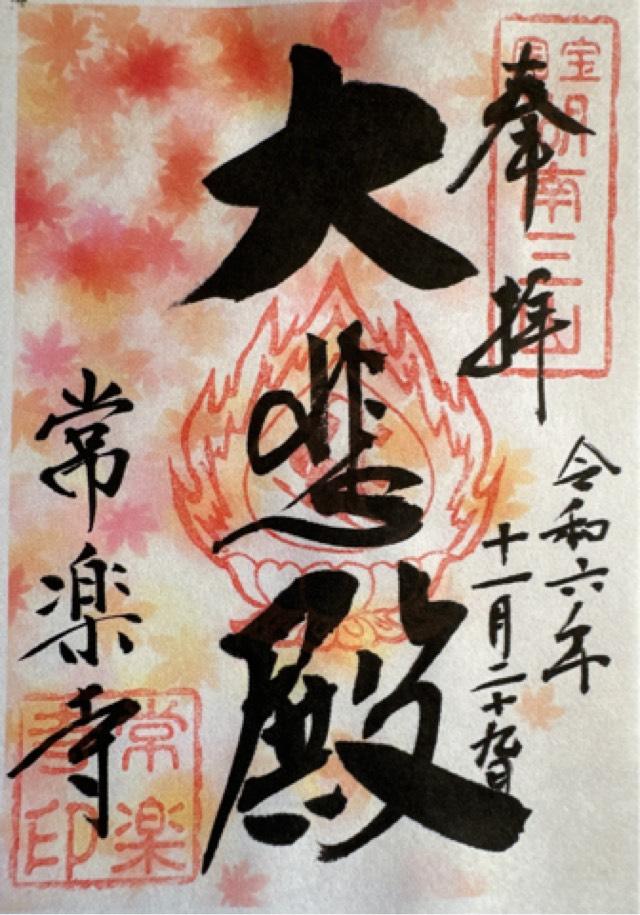 国宝
湖南三山
奉拝
令和六年
十一月二十九日
大悲殿
常楽寺
常楽
寺印